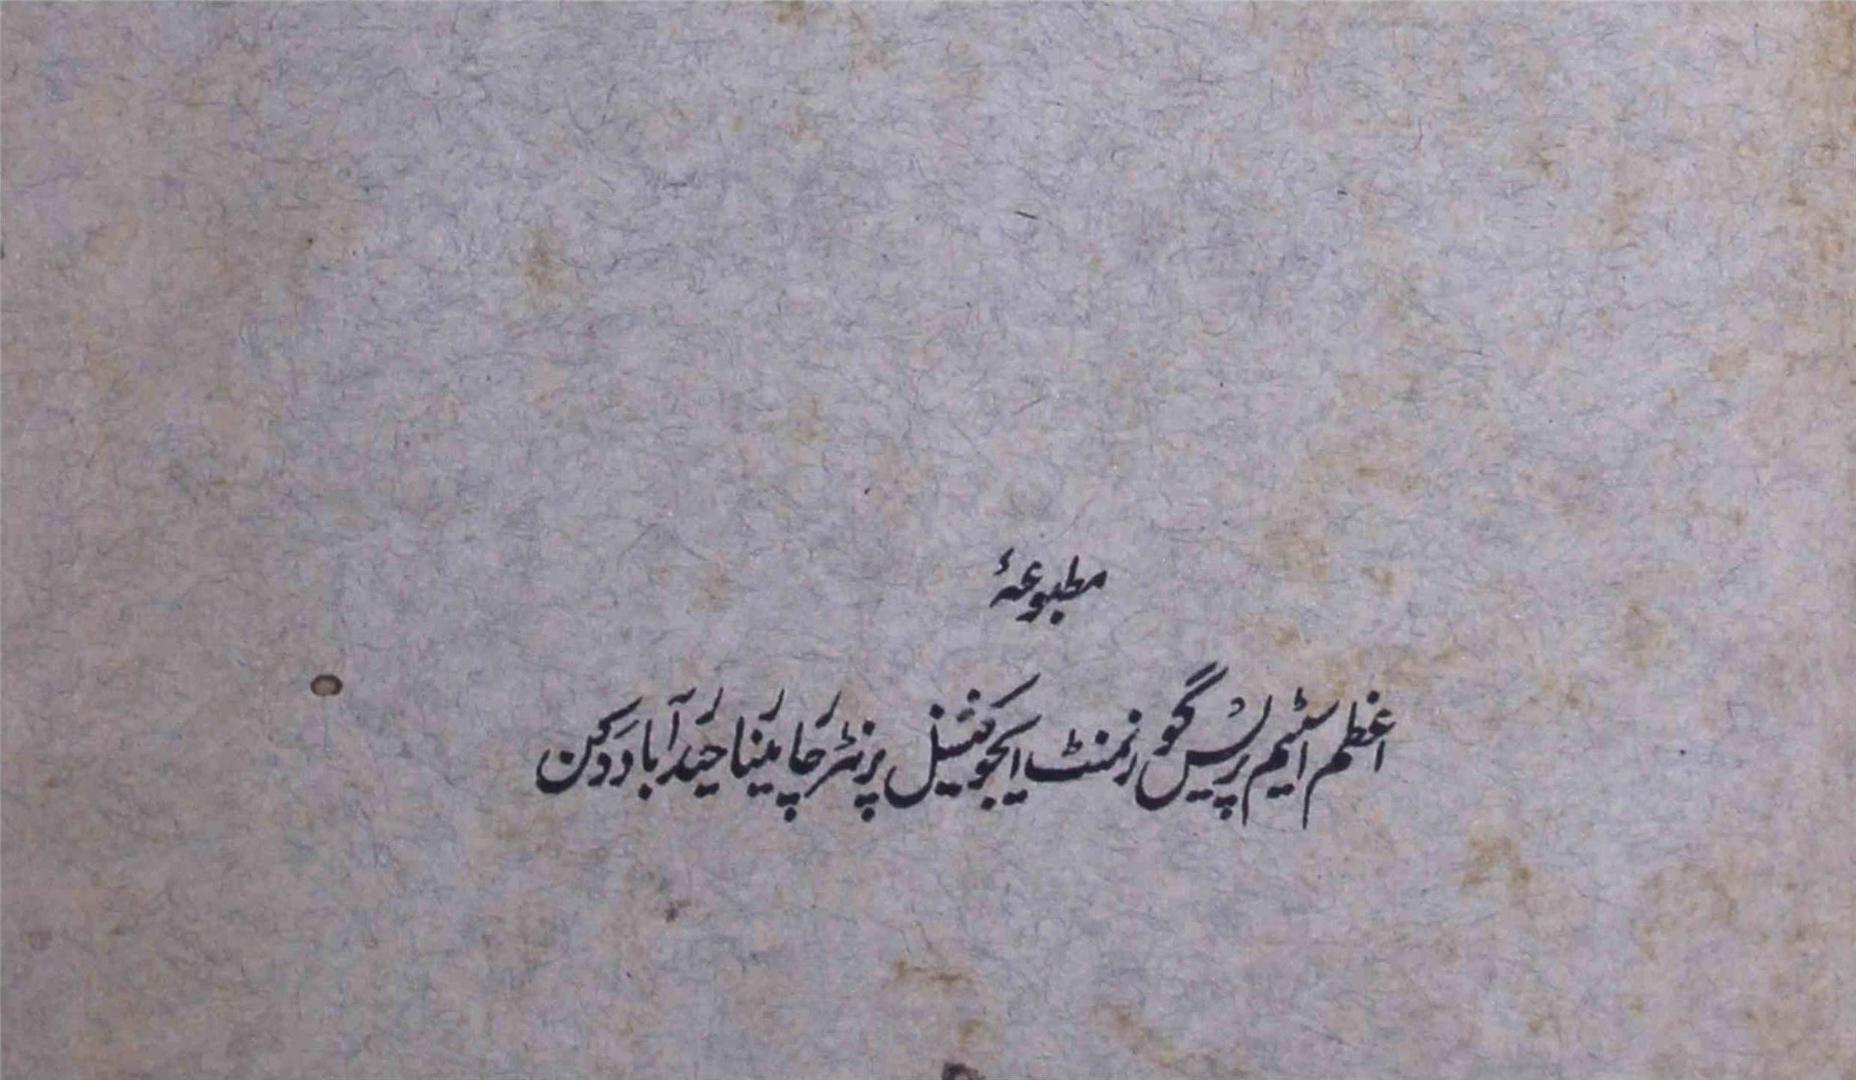 مطبوعۂ
اعظم اسٹیم پریس گورنمنٹ ایجوکیشنل پرنٹر چارمینار حیدرآباد دکن